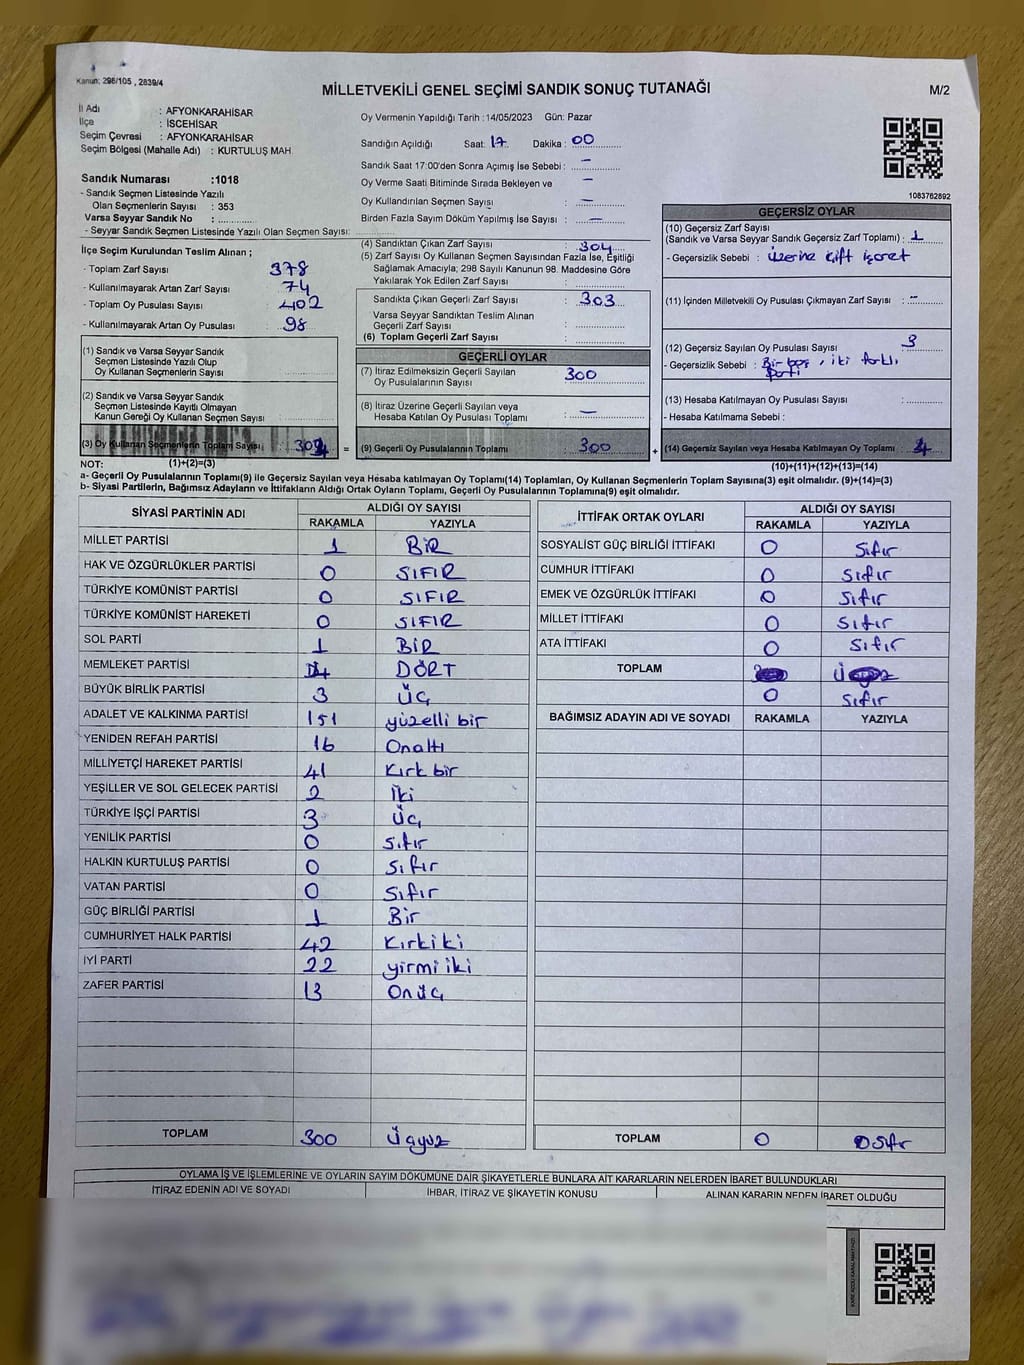 Kanun: 298/105 , 2839/4
MİLLETVEKİLİ GENEL SEÇİMİ SANDIK SONUÇ TUTANAĞI
M/2
İl Adı : AFYONKARAHİSAR
İlçe : İSCEHİSAR
Seçim Çevresi : AFYONKARAHİSAR
Seçim Bölgesi (Mahalle Adı) : KURTULUŞ MAH.
Sandık Numarası :1018
- Sandık Seçmen Listesinde Yazılı
Olan Seçmenlerin Sayısı : 353
Varsa Seyyar Sandık No :
- Seyyar Sandık Seçmen Listesinde Yazılı Olan Seçmen Sayısı:
İlçe Seçim Kurulundan Teslim Alınan ;
- Toplam Zarf Sayısı : 378
- Kullanılmayarak Artan Zarf Sayısı : 74
- Toplam Oy Pusulası Sayısı : 402
- Kullanılmayarak Artan Oy Pusulası : 98
(1) Sandık ve Varsa Seyyar Sandık
Seçmen Listesinde Yazılı Olup
Oy Kullanan Seçmenlerin Sayısı :
(2) Sandık ve Varsa Seyyar Sandık
Seçmen Listesinde Kayıtlı Olmayan
Kanun Gereği Oy Kullanan Seçmen Sayısı :
(3) Oy Kullanan Seçmenlerin Toplam Sayısı : 304 =
Oy Vermenin Yapıldığı Tarih :14/05/2023 Gün: Pazar
Sandığın Açıldığı Saat: 17 Dakika : 00
Sandık Saat 17:00'den Sonra Açımış İse Sebebi : -
Oy Verme Saati Bitiminde Sırada Bekleyen ve -
Oy Kullandırılan Seçmen Sayısı : -
Birden Fazla Sayım Döküm Yapılmış İse Sayısı : -
(4) Sandıktan Çıkan Zarf Sayısı : 304
(5) Zarf Sayısı Oy Kullanan Seçmen Sayısından Fazla İse, Eşitliği
Sağlamak Amacıyla; 298 Sayılı Kanunun 98. Maddesine Göre
Yakılarak Yok Edilen Zarf Sayısı :
Sandıkta Çıkan Geçerli Zarf Sayısı : 303
Varsa Seyyar Sandıktan Teslim Alınan
Geçerli Zarf Sayısı :
(6) Toplam Geçerli Zarf Sayısı :
GEÇERLİ OYLAR
(7) İtiraz Edilmeksizin Geçerli Sayılan
Oy Pusulalarının Sayısı : 300
(8) İtiraz Üzerine Geçerli Sayılan veya
Hesaba Katılan Oy Pusulası Toplamı : -
(9) Geçerli Oy Pusulalarının Toplamı : 300 +
1083762892
GEÇERSİZ OYLAR
(10) Geçersiz Zarf Sayısı
(Sandık ve Varsa Seyyar Sandık Geçersiz Zarf Toplamı) : 1
- Geçersizlik Sebebi : üzerine Çift işaret
(11) İçinden Milletvekili Oy Pusulası Çıkmayan Zarf Sayısı : -
(12) Geçersiz Sayılan Oy Pusulası Sayısı : 3
- Geçersizlik Sebebi : Bir boş , iki farklı
parti
(13) Hesaba Katılmayan Oy Pusulası Sayısı :
- Hesaba Katılmama Sebebi :
(14) Geçersiz Sayılan veya Hesaba Katılmayan Oy Toplamı : 4
NOT: (1)+(2)=(3)
(10)+(11)+(12)+(13)=(14)
a- Geçerli Oy Pusulalarının Toplamı(9) ile Geçersiz Sayılan veya Hesaba katılmayan Oy Toplamı(14) Toplamları, Oy Kullanan Seçmenlerin Toplam Sayısına(3) eşit olmalıdır. (9)+(14)=(3)
b- Siyasi Partilerin, Bağımsız Adayların ve İttifakların Aldığı Ortak Oyların Toplamı, Geçerli Oy Pusulalarının Toplamına(9) eşit olmalıdır.
SİYASİ PARTİNİN ADI ALDIĞI OY SAYISI
RAKAMLA YAZIYLA
MİLLET PARTİSİ 1 BİR
HAK VE ÖZGÜRLÜKLER PARTİSİ 0 SIFIR
TÜRKİYE KOMÜNİST PARTİSİ 0 SIFIR
TÜRKİYE KOMÜNİST HAREKETİ 0 SIFIR
SOL PARTİ 1 BİR
MEMLEKET PARTİSİ 4 DÖRT
BÜYÜK BİRLİK PARTİSİ 3 ÜÇ
ADALET VE KALKINMA PARTİSİ 151 yüzelli bir
YENİDEN REFAH PARTİSİ 16 Onaltı
MİLLİYETÇİ HAREKET PARTİSİ 41 Kırk bir
YEŞİLLER VE SOL GELECEK PARTİSİ 2 İki
TÜRKİYE İŞÇİ PARTİSİ 3 üç
YENİLİK PARTİSİ 0 sıfır
HALKIN KURTULUŞ PARTİSİ 0 sıfır
VATAN PARTİSİ 0 sıfır
GÜÇ BİRLİĞİ PARTİSİ 1 Bir
CUMHURİYET HALK PARTİSİ 42 Kırkiki
İYİ PARTİ 22 yirmi iki
ZAFER PARTİSİ 13 Onüç
TOPLAM 300 Üçyüz
İTTİFAK ORTAK OYLARI ALDIĞI OY SAYISI
RAKAMLA YAZIYLA
SOSYALİST GÜÇ BİRLİĞİ İTTİFAKI 0 sıfır
CUMHUR İTTİFAKI 0 sıfır
EMEK VE ÖZGÜRLÜK İTTİFAKI 0 sıfır
MİLLET İTTİFAKI 0 sıfır
ATA İTTİFAKI 0 sıfır
TOPLAM
0 sıfır
BAĞIMSIZ ADAYIN ADI VE SOYADI RAKAMLA YAZIYLA
TOPLAM 0 sıfır
OYLAMA İŞ VE İŞLEMLERİNE VE OYLARIN SAYIM DÖKÜMÜNE DAİR ŞİKAYETLERLE BUNLARA AİT KARARLARIN NELERDEN İBARET BULUNDUKLARI
İTİRAZ EDENİN ADI VE SOYADI İHBAR, İTİRAZ VE ŞİKAYETİN KONUSU ALINAN KARARIN NEDEN İBARET OLDUĞU